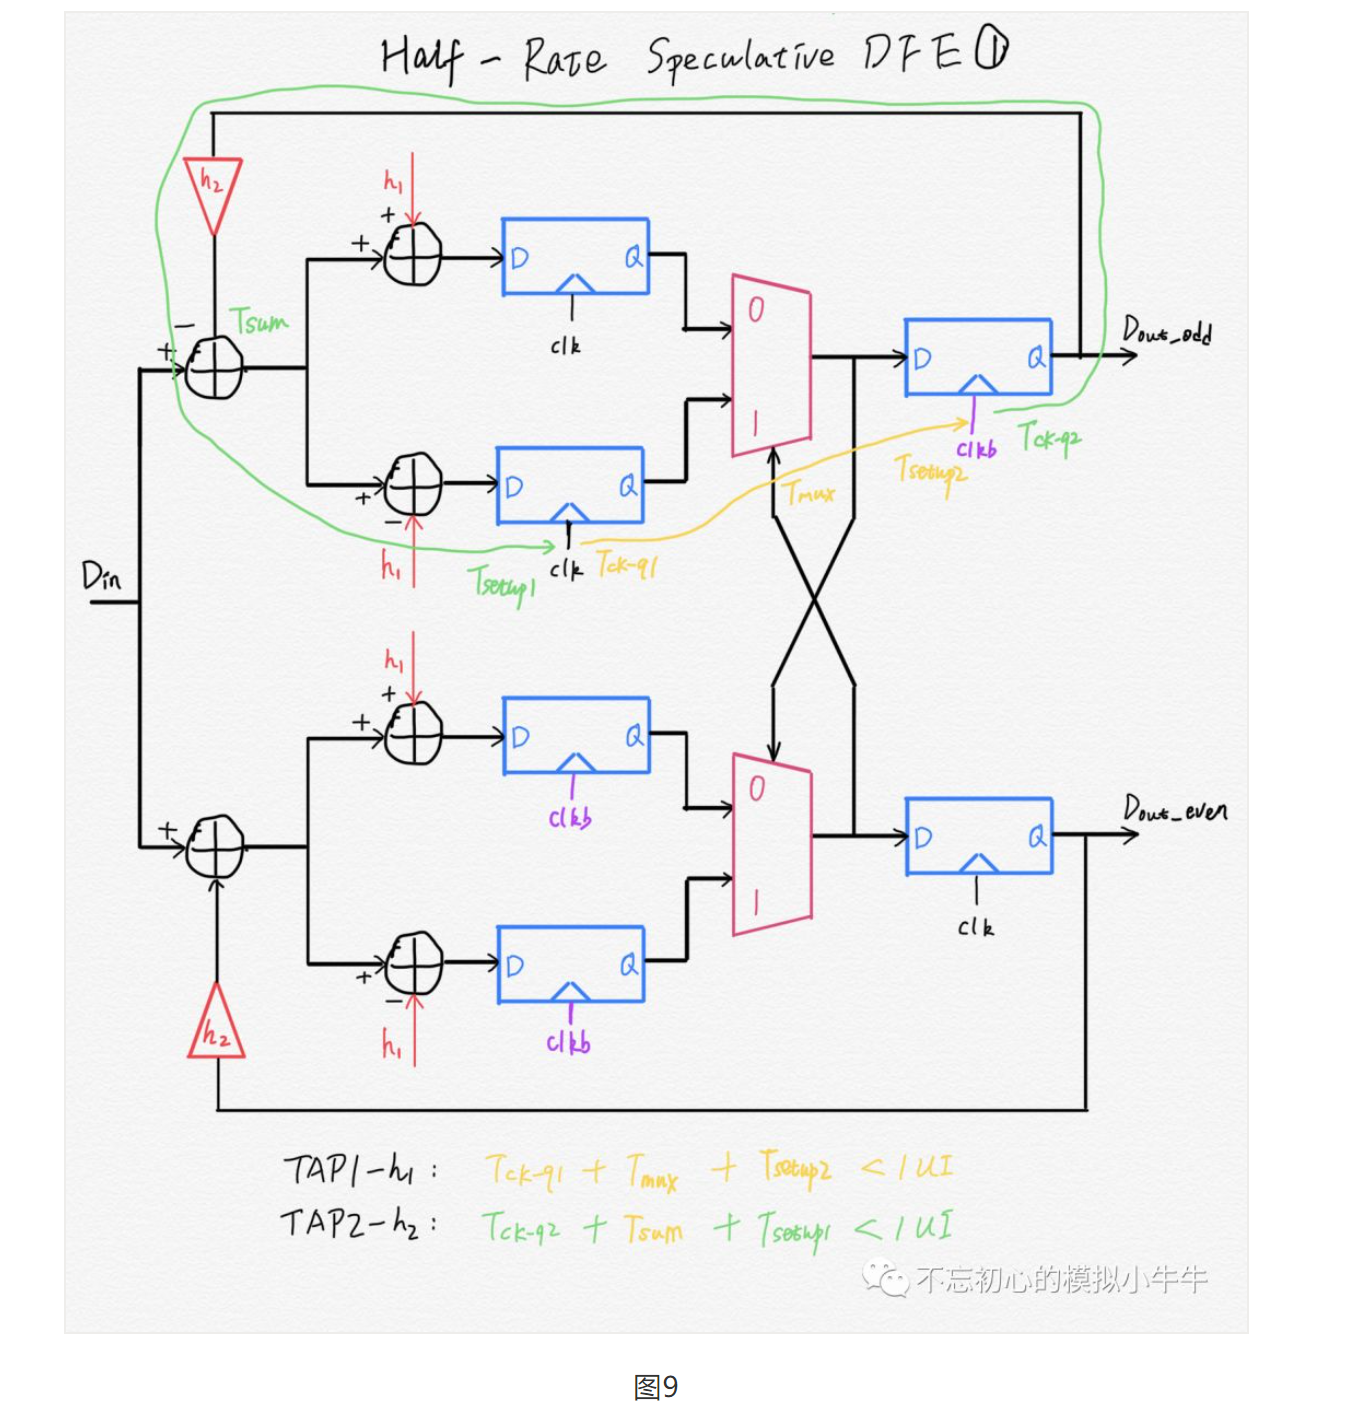 Half - Rate Speculative DFE ①
h₂
h₁
+
+
D Q
clk
0
1
- 
Tsum
+
D Q
clkb
Dout_odd
Tck-q2
Tsetup2
Tmux
D Q
clk
+
-
h₁
Tsetup1
Tck-q1
Din
h₁
+
+
D Q
clkb
0
1
+
D Q
clk
Dout_even
D Q
clkb
+
-
h₁
h₂
TAP1-h₁: Tck-q1 + Tmux + Tsetup2 < 1 UI
TAP2-h₂: Tck-q2 + Tsum + Tsetup1 < 1 UI
不忘初心的模拟小牛牛
图9